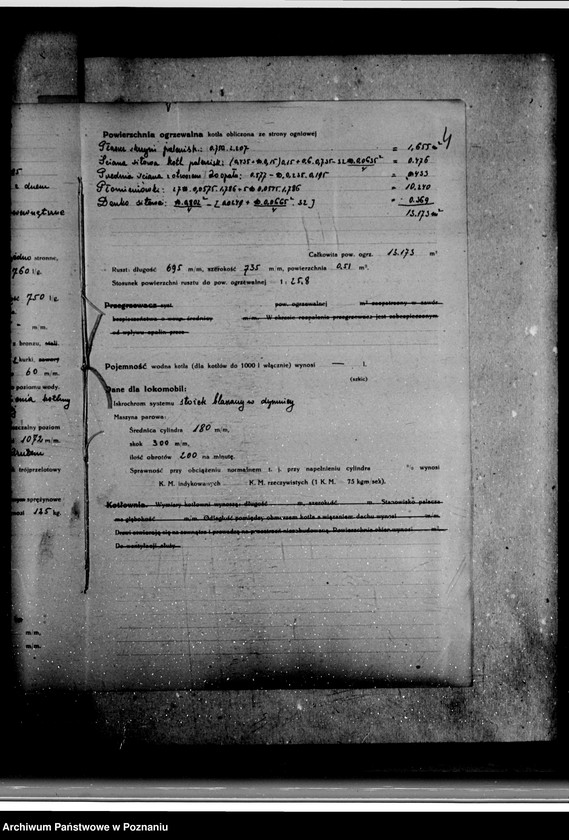 4
Powierzchnia ogrzewalna kotła obliczona ze strony ogniowej
Płaszcz skrzyni palenisk.: 0,750. 2,207 = 1,655 m²
Ściana sitowa kotł. palenisk: = 0.476
Przednia ściana z otworem = 0,433
Płomieniówki: 27 . 0,0575. 1,786 + 5 0,0575. 1,786 = 10.240
Denko sitowe: = 0.369
13.173 m²
Całkowita pow. ogrz. 13.173 m²
Ruszt: długość 695 m/m, szerokość 735 m/m, powierzchnia 0,51 m².
Stosunek powierzchni rusztu do pow. ogrzewalnej 1 : 25,8
Przegrzewacz syst. pow. ogrzewalnej m² zaopatrzony w zawór
bezpieczeństwa o wewn. średnicy m/m. W okresie rozpalania przegrzewacz jest zabezpieczony
od wpływu spalin przez
Pojemność wodna kotła (dla kotłów do 1000 l włącznie) wynosi — l.
(szkic)
Dane dla lokomobil:
Iskrochron systemu stożek blaszany w dymnicy
Maszyna parowa:
Średnica cylindra 180 m/m,
skok 300 m/m,
ilość obrotów 200 na minutę.
Sprawność przy obciążeniu normalnem t. j. przy napełnieniu cylindra % wynosi
K. M. indykowanych K. M. rzeczywistych (1 K. M. — 75 kgm/sek).
Kotłownia. Wymiary kotłowni wynoszą: długość m, szerokość m. Stanowisko palacza
ma głębokość m/m. Odległość pomiędzy obmurzem kotła a wiązaniem dachu wynosi m/m.
Drzwi otwierają się na zewnątrz i prowadzą na przestrzeń niezabudowaną. Powierzchnia okien wynosi m²
Do wentylacji służy
z dnem
wewnętrzne
stronne,
760 l/g.
750 l/g.
m/m.
z bronzu,
kurki,
60 m/m.
poziomu wody.
poziom
1072 m/m.
trójprzelotowy
sprężynowe
125 kg.
m/m,
m/m.
Archiwum Państwowe w Poznaniu